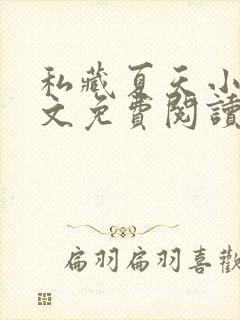 私藏夏天小
文免費閱讀
扁羽扁羽喜歡